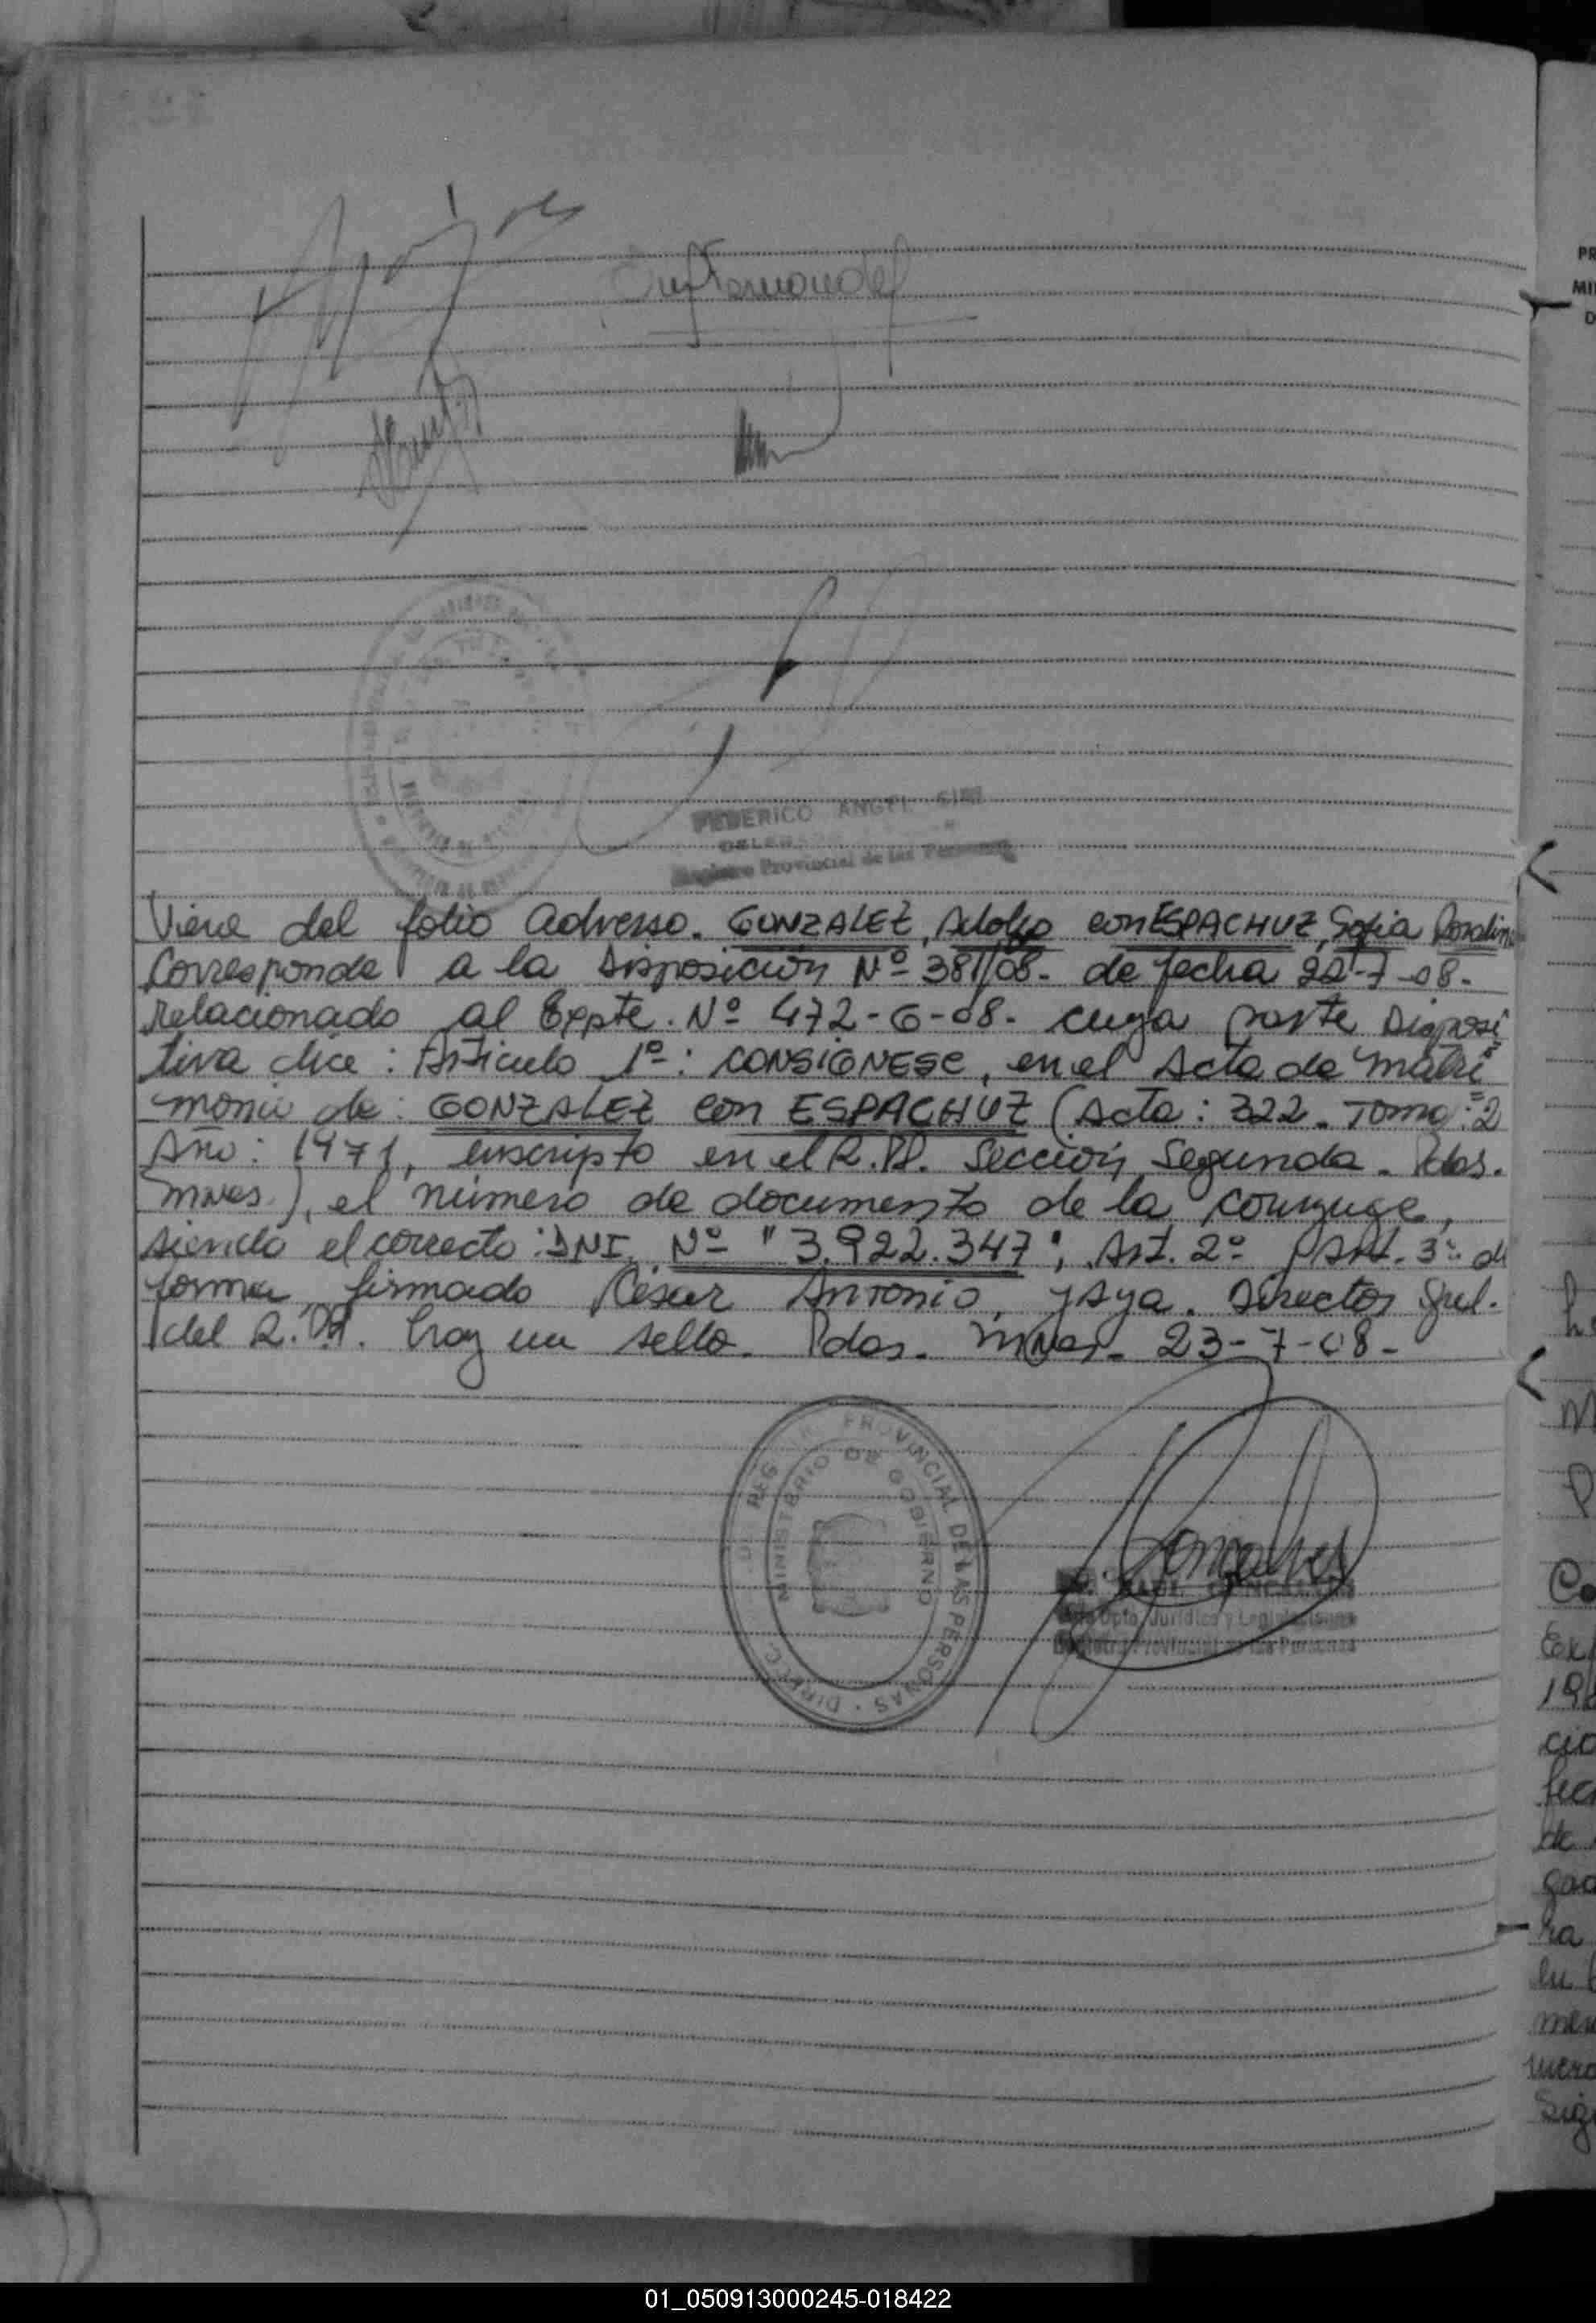 FEDERICO ANGEL
Registro Provincial de las Personas
Viene del folio adverso. GONZALEZ, Adolfo con ESPACHUZ, Sofia
Corresponde a la Disposición Nº 381/08. de fecha 22-7-08.
relacionado al Expte. Nº 472-G-08. cuya parte Disposi
tiva dice: Articulo 1º: CONSIGNESE, en el Acta de matri
monio de: GONZALEZ con ESPACHUZ (Acta: 322. Tomo: 2
Año: 1971, inscripto en el R.P.P. Sección Segunda. Pdas.
Mnes.), el número de documento de la conyuge,
siendo el correcto: DNI. Nº "3.922.347"; Art. 2º y Art. 3º de
forma, firmado César Antonio, ysya. Director Gral.
del R.P.P. hay un sello. Pdas. Mnes. 23-7-08-
PROVINCIAL DE LAS PERSONAS
MINISTERIO DE GOBIERNO
Dpto. Jurídico y Legislaciones
Registro Provincial de las Personas
PR
MI
D
Co
Ex
19
cio
fec
de
gad
ra
en
men
mero
Sig
01_050913000245-018422